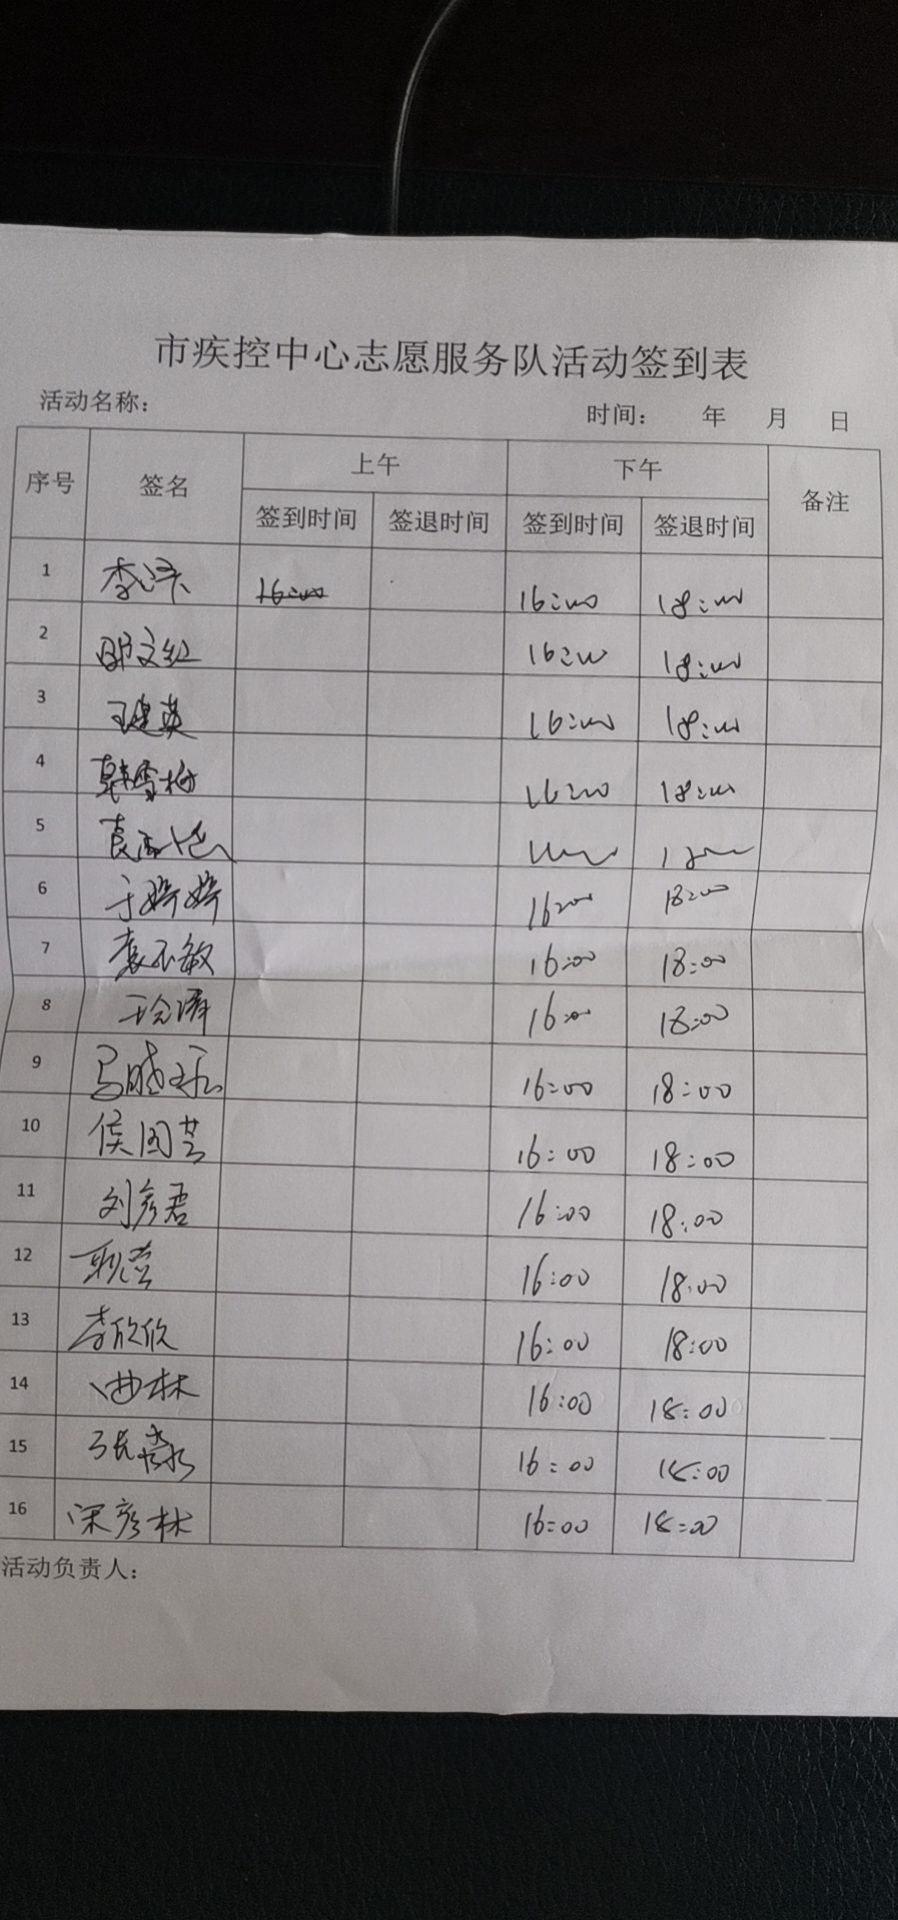 市疾控中心志愿服务队活动签到表
活动名称： 时间： 年 月 日
序号 签名 上午 下午 备注
签到时间 签退时间 签到时间 签退时间
1 16:00 16:00 18:00
2 邵文红 16:00 18:00
3 王建英 16:00 18:00
4 韩雪梅 16:00 18:00
5
6 于婷婷 16:00 18:00
7 袁不敏 16:00 18:00
8 16:00 18:00
9 16:00 18:00
10 侯国芸 16:00 18:00
11 刘彦君 16:00 18:00
12 16:00 18:00
13 李欣欣 16:00 18:00
14 曲林 16:00 18:00
15 16:00 18:00
16 宋彦林 16:00 18:00
活动负责人：